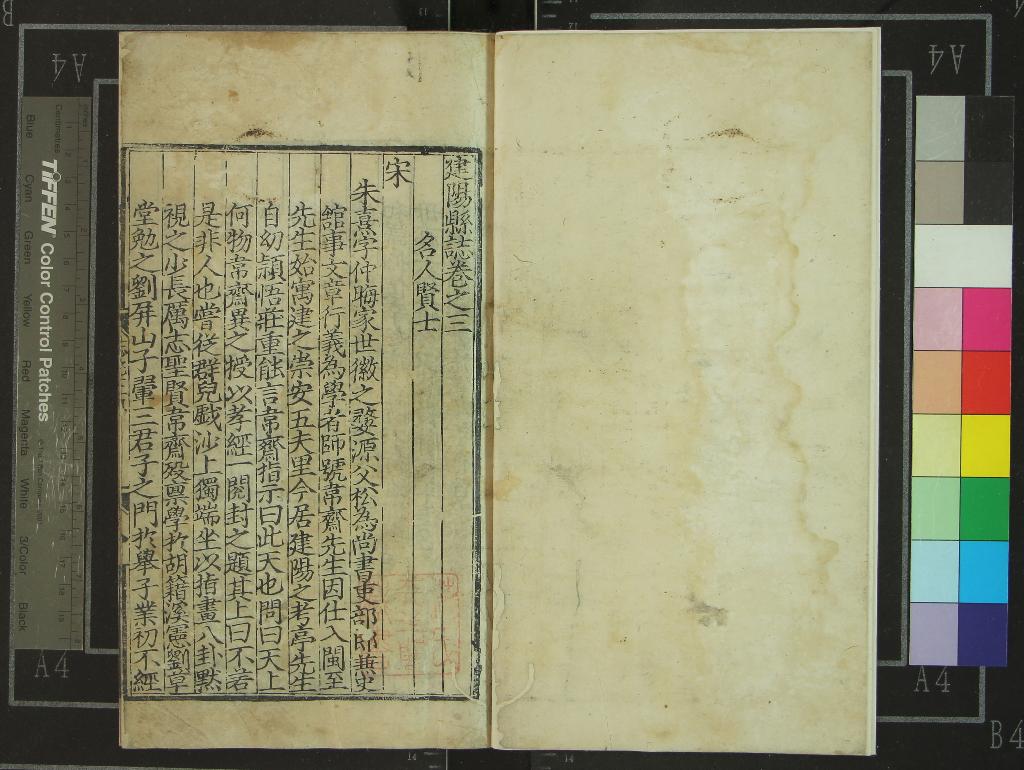 建陽縣誌卷之三
名人賢士
宋
朱熹字仲晦家世徽之婺源父松為尚書吏部郎兼史
館事文章行義為學者師號韋齋先生因仕入閩至
先生始寓建之崇安五夫里今居建陽之考亭先生
自幼頴悟莊重能言韋齋指示曰此天也問曰天上
何物韋齋異之授以孝經一閱封之題其上曰不若
是非人也嘗從群兒戲沙上獨端坐以指畫八卦默
視之少長厲志聖賢韋齋歿禀學於胡籍溪憲劉草
堂勉之劉屏山子翬三君子之門於舉子業初不經
TIFFEN Color Control Patches
Centimetres
Blue
Cyan
Green
Yellow
Red
Magenta
White
3/Color
Black
A4
A4
A4
A4
B4